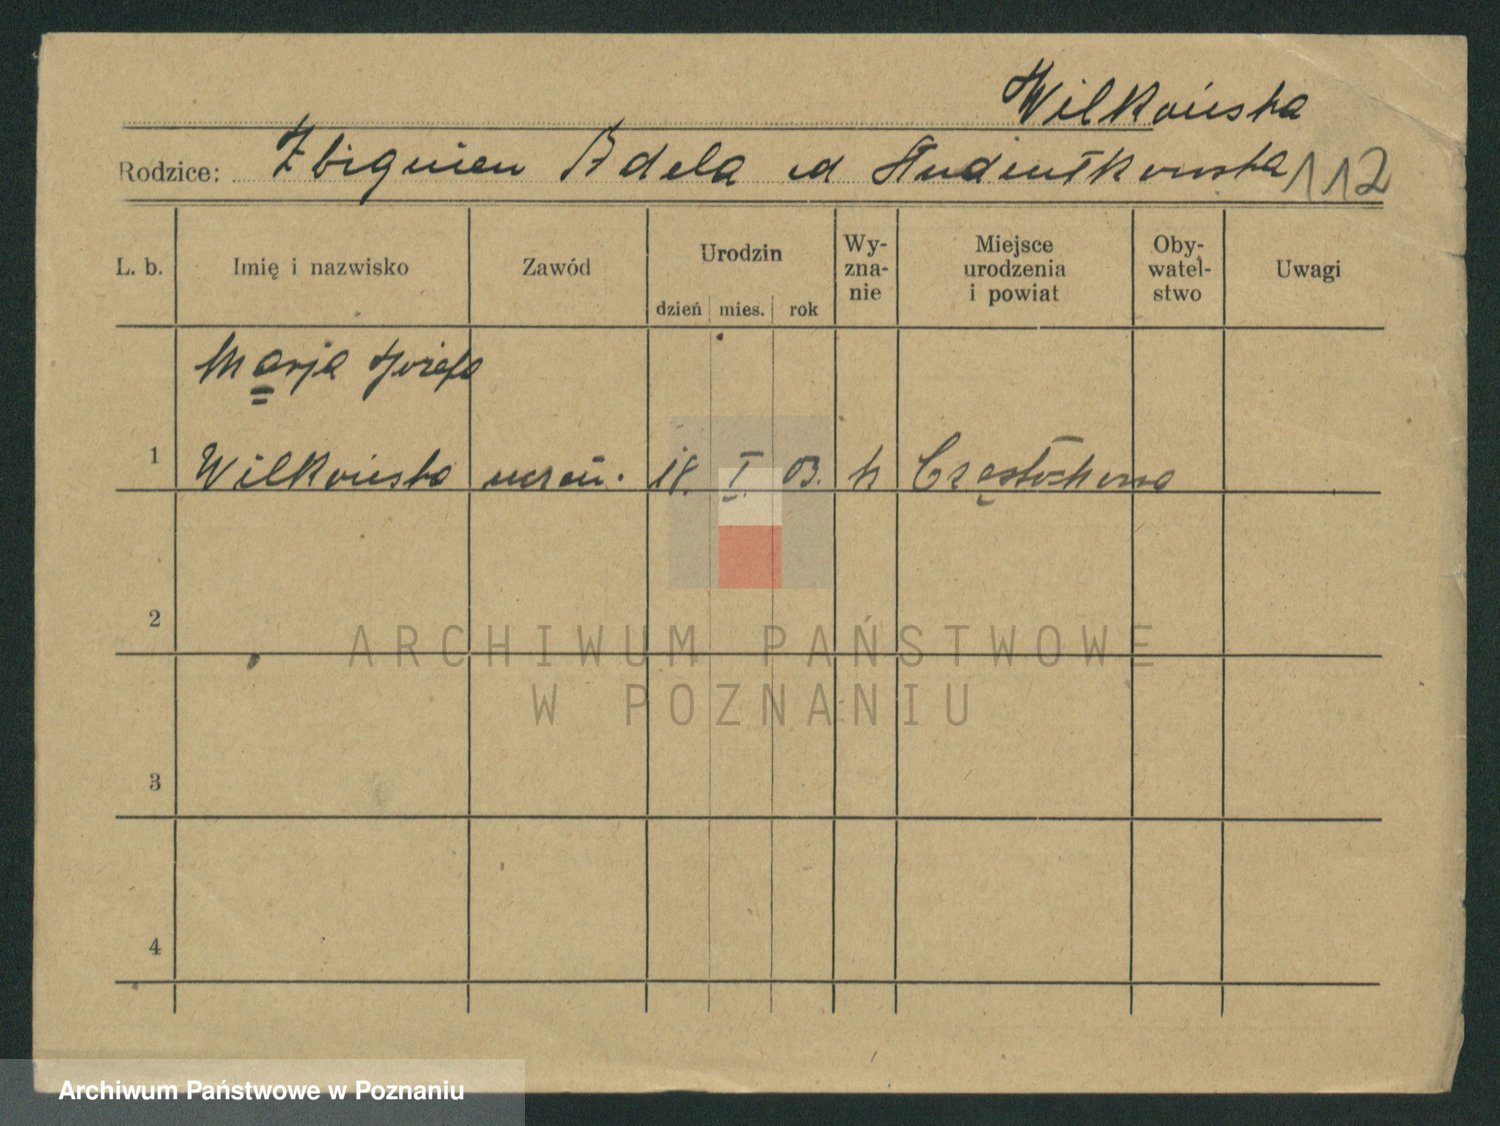 Wilkońska
Rodzice: Zbigniew Adela
112
L. b. Imię i nazwisko Zawód Urodzin dzień mies. rok Wy-zna-nie Miejsce urodzenia i powiat Oby-watel-stwo Uwagi
Marja Józefa
1 Wilkońska uczeń. 18. I. 03. k Częstochowa
2
ARCHIWUM PAŃSTWOWE
W POZNANIU
3
4
Archiwum Państwowe w Poznaniu